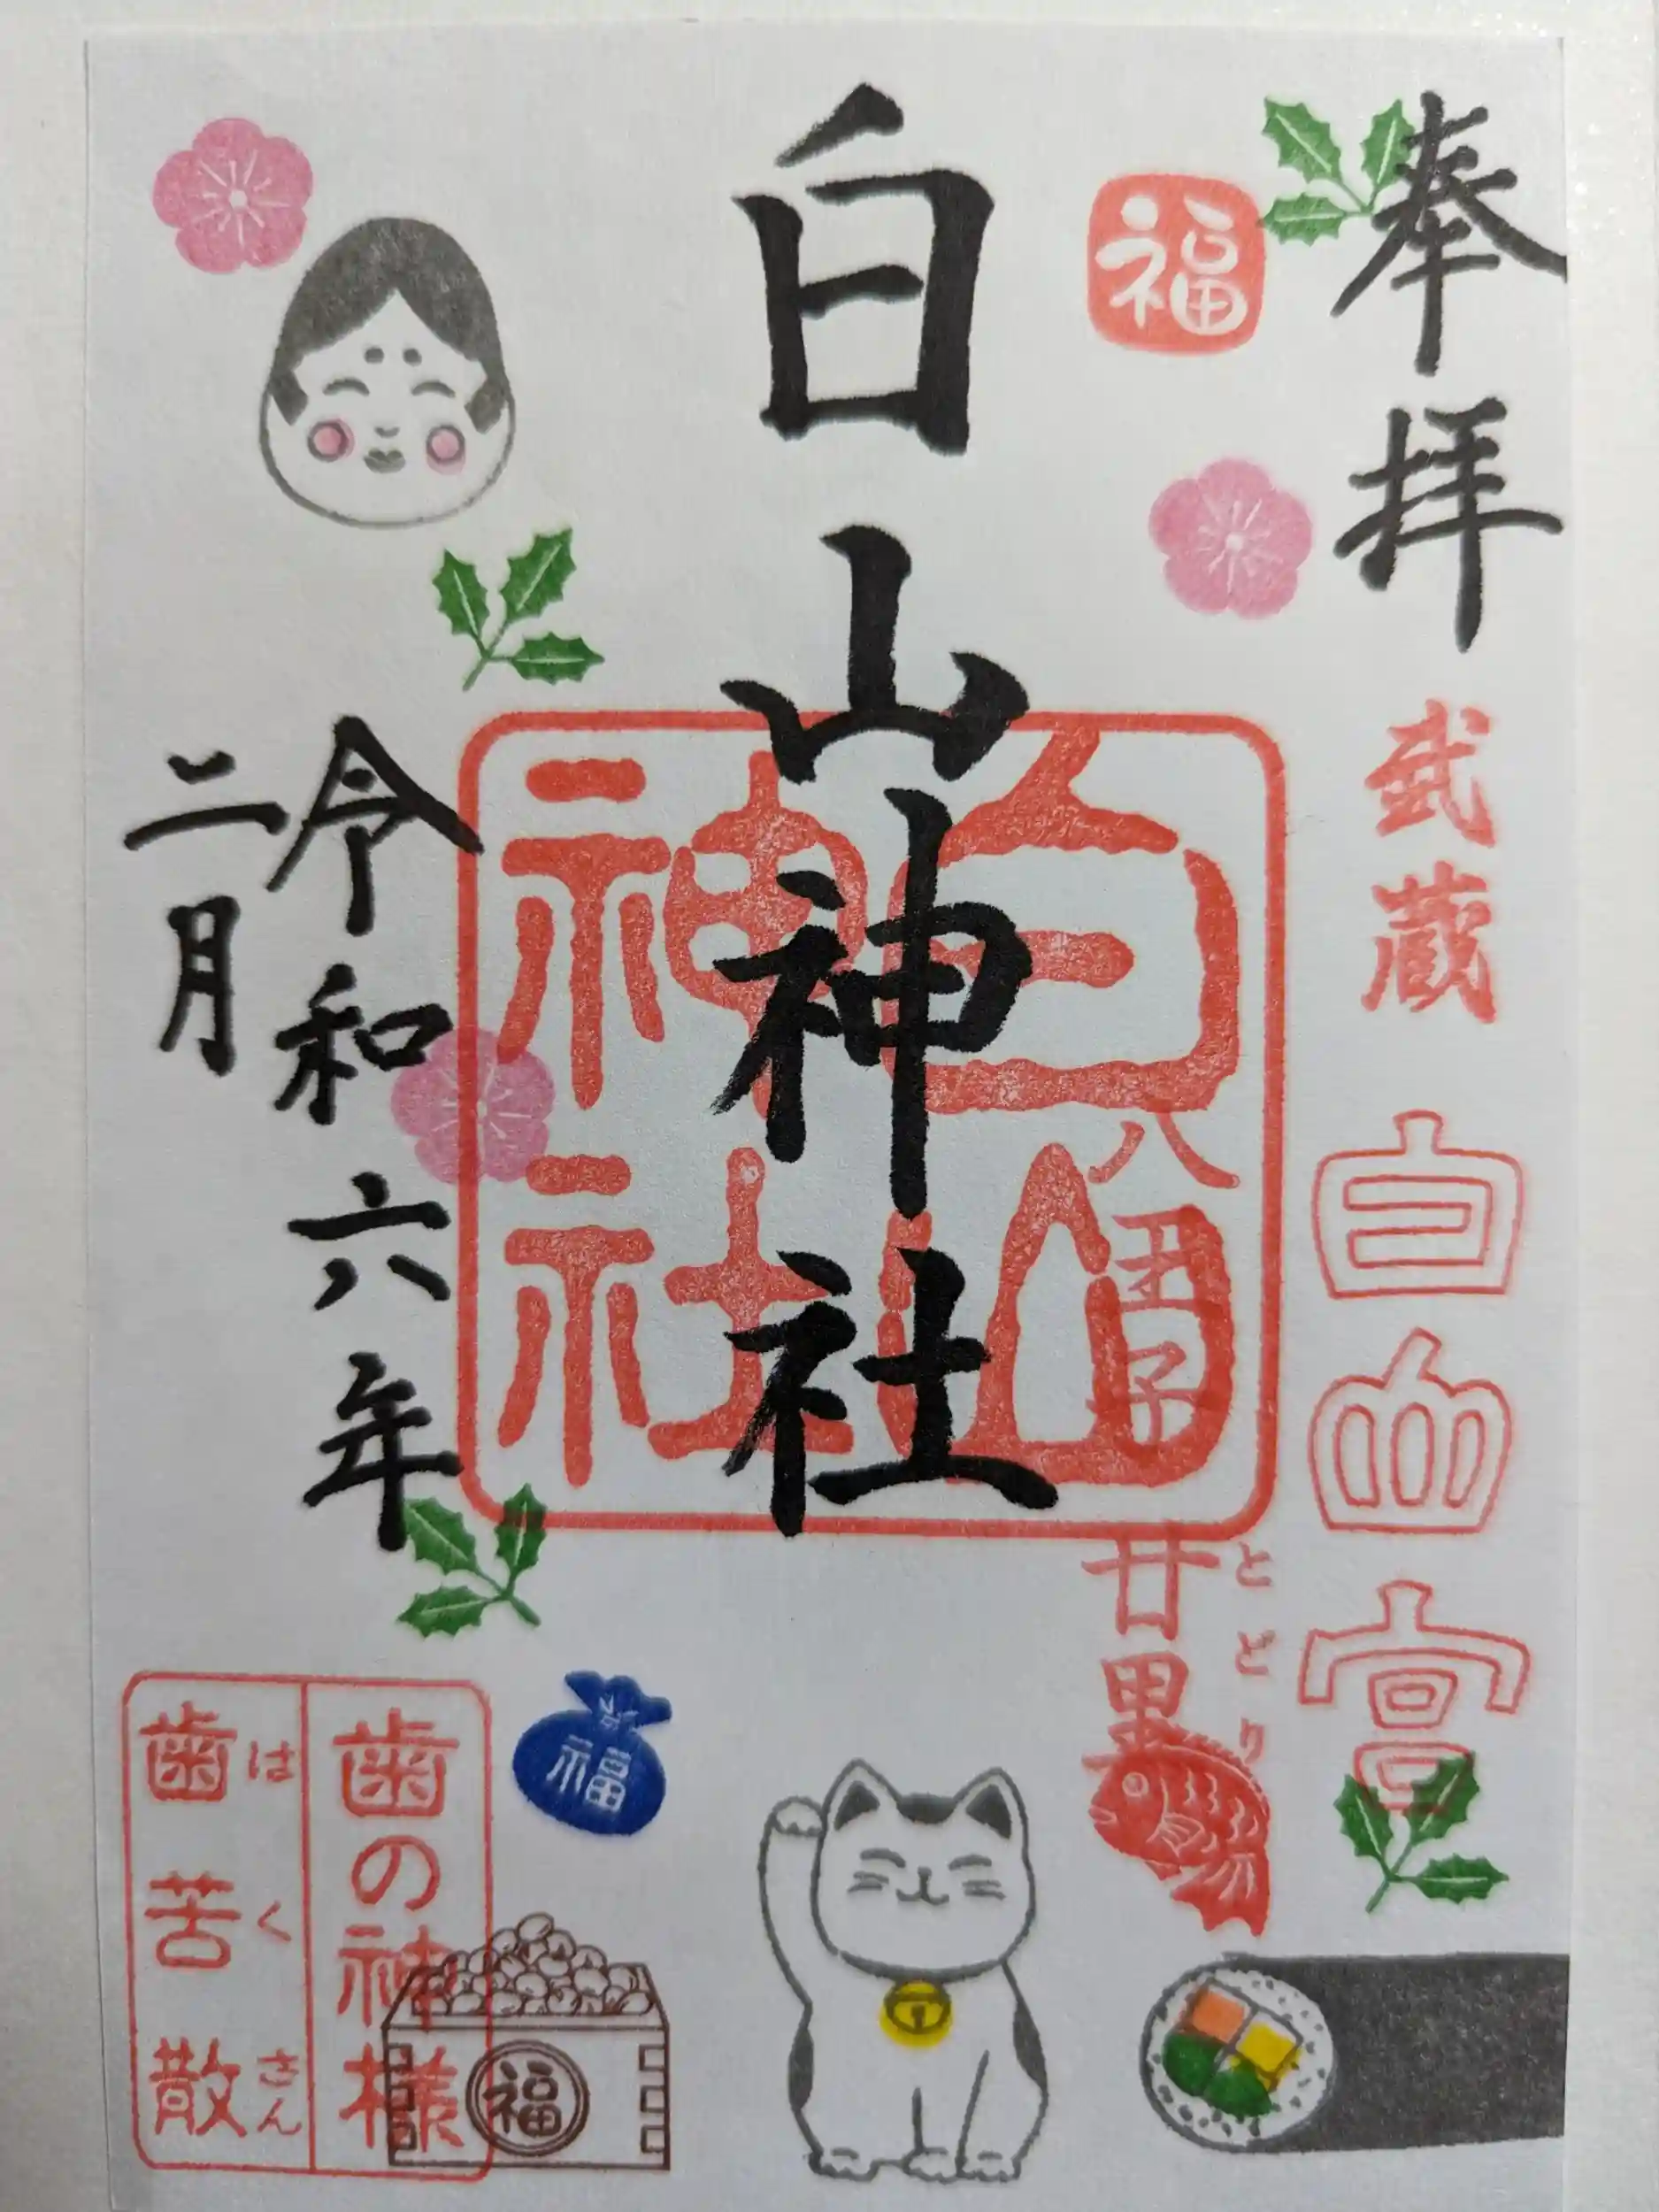 奉拝
武蔵
白山宮
福
白山神社
白山神社
八王子
廿里
とどり
令和六年
二月
福
歯の神様
はくさん
歯苦散
福